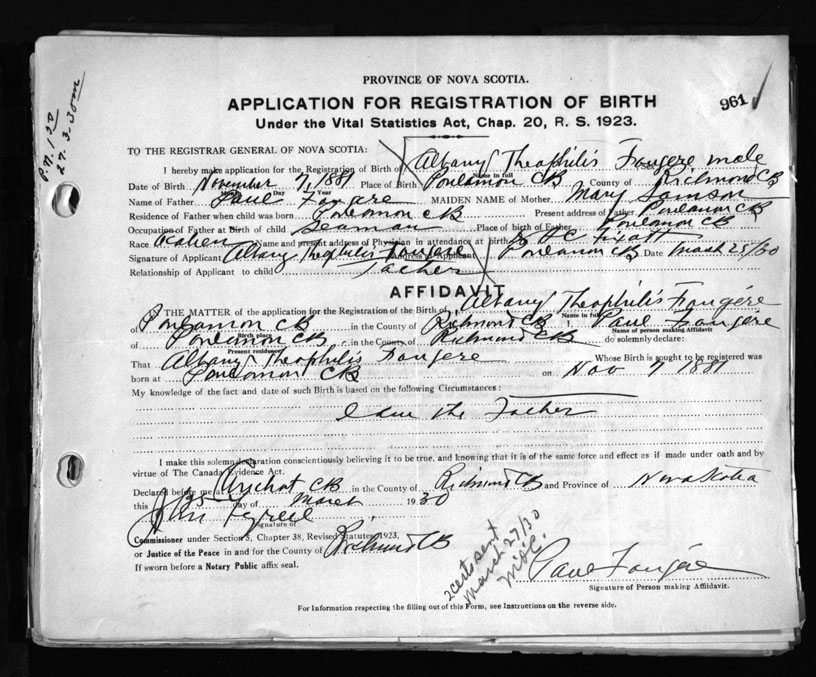 PROVINCE OF NOVA SCOTIA.
APPLICATION FOR REGISTRATION OF BIRTH
961
Under the Vital Statistics Act, Chap. 20, R. S. 1923.
TO THE REGISTRAR GENERAL OF NOVA SCOTIA:
I hereby make application for the Registration of Birth of Albany Theophilis Fougere male
Name in full
Date of Birth November 7, 1881 Place of Birth Poulamon CB County of Richmond CB
Month Day Year
Name of Father Paul Fougere MAIDEN NAME of Mother Mary Samson
Residence of Father when child was born Poulamon CB Present address of Father Poulamon CB
Occupation of Father at Birth of child Seaman Place of birth of Father Poulamon CB
Race Name and present address of Physician in attendance at birth
Signature of Applicant Albany Theophilis Fougere Address of Applicant Poulamon CB Date March 25/30
Relationship of Applicant to child Father
AFFIDAVIT
IN THE MATTER of the application for the Registration of the Birth of Albany Theophilis Fougére
Name in full
of Poulamon CB in the County of Richmond CB I, Paul Fougére
Birth place Name of person making Affidavit
of Poulamon CB in the County of Richmond CB do solemnly declare:
Present residence
That Albany Theophilis Fougere Whose Birth is sought to be registered was
born at Poulamon CB on Nov 7 1881
My knowledge of the fact and date of such Birth is based on the following Circumstances:
I am the Father
I make this solemn declaration conscientiously believing it to be true, and knowing that it is of the same force and effect as if made under oath and by
virtue of The Canada Evidence Act.
Declared before me at Arichat CB in the County of Richmond CB and Province of Nova Scotia
this 25 day of March 1930
Signature of
Commissioner under Section 5, Chapter 38, Revised Statutes, 1923,
or Justice of the Peace in and for the County of Richmond CB
If sworn before a Notary Public affix seal.
2 certs sent
March 27/30
Paul Fougére
Signature of Person making Affidavit.
For Information respecting the filling out of this Form, see Instructions on the reverse side.